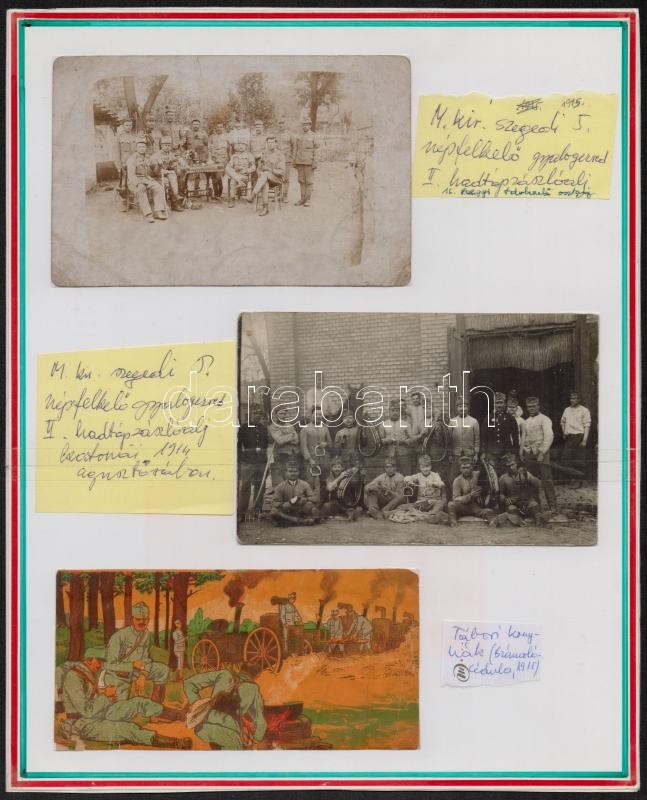 1915.
M. kir. szegedi 5.
népfelkelő gyalogezred
II. hadtápzászlóalj
16.
M. kir. szegedi 5.
népfelkelő gyalogezred
II. hadtápzászlóalj
katonái 1914
augusztusában.
darabanth
Tábori kony-
hák (Számoló-
cédula, 1915)